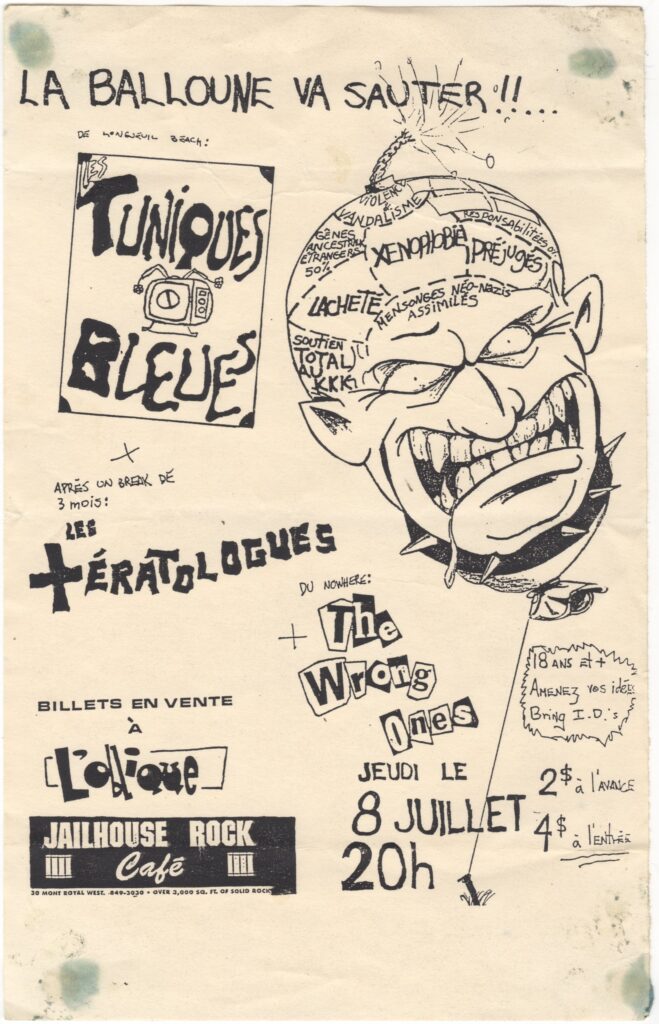 LA BALLOUNE VA SAUTER!!...
DE LONGUEUIL BEACH:
LES
TUNIQUES
BLEUES
VIOLENCE
&
VANDALISME
RESPONSABILITÉES 0%
GÊNES
ANCESTRAUX
ÉTRANGERS
50%
XENOPHOBIE
PRÉJUGÉS
LACHETÉ
MENSONGES NÉO-NAZIS
ASSIMILÉS
SOUTIEN
TOTAL
AU
KKK
+
APRÈS UN BREAK DE
3 MOIS:
LES
TÉRATOLOGUES
DU NOWHERE:
+ The
Wrong
Ones
18 ANS ET +
AMENEZ VOS IDÉES
Bring I.D.'s
BILLETS EN VENTE
À
L'oblique
JAILHOUSE ROCK
Café
30 MONT ROYAL WEST. 849-3030 • OVER 3,000 SQ. FT. OF SOLID ROCK
JEUDI LE
8 JUILLET
20h
2$ à l'AVANCE
4$ à l'ENTRÉE